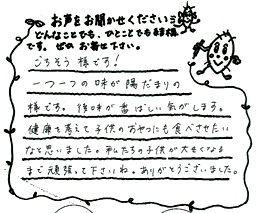 お声をお聞かせください
どんなことでも、ひとことでも結構
です。ぜひ お寄せ下さい。
ごちそう様です!
一つ一つの味が陽だまりの
様です。後味が香ばしい気がします。
健康を考えて子供のおやつにも食べさせたい
なと思いました。私たちの子供が大きくなる
まで頑張って下さいね。ありがとうございました。